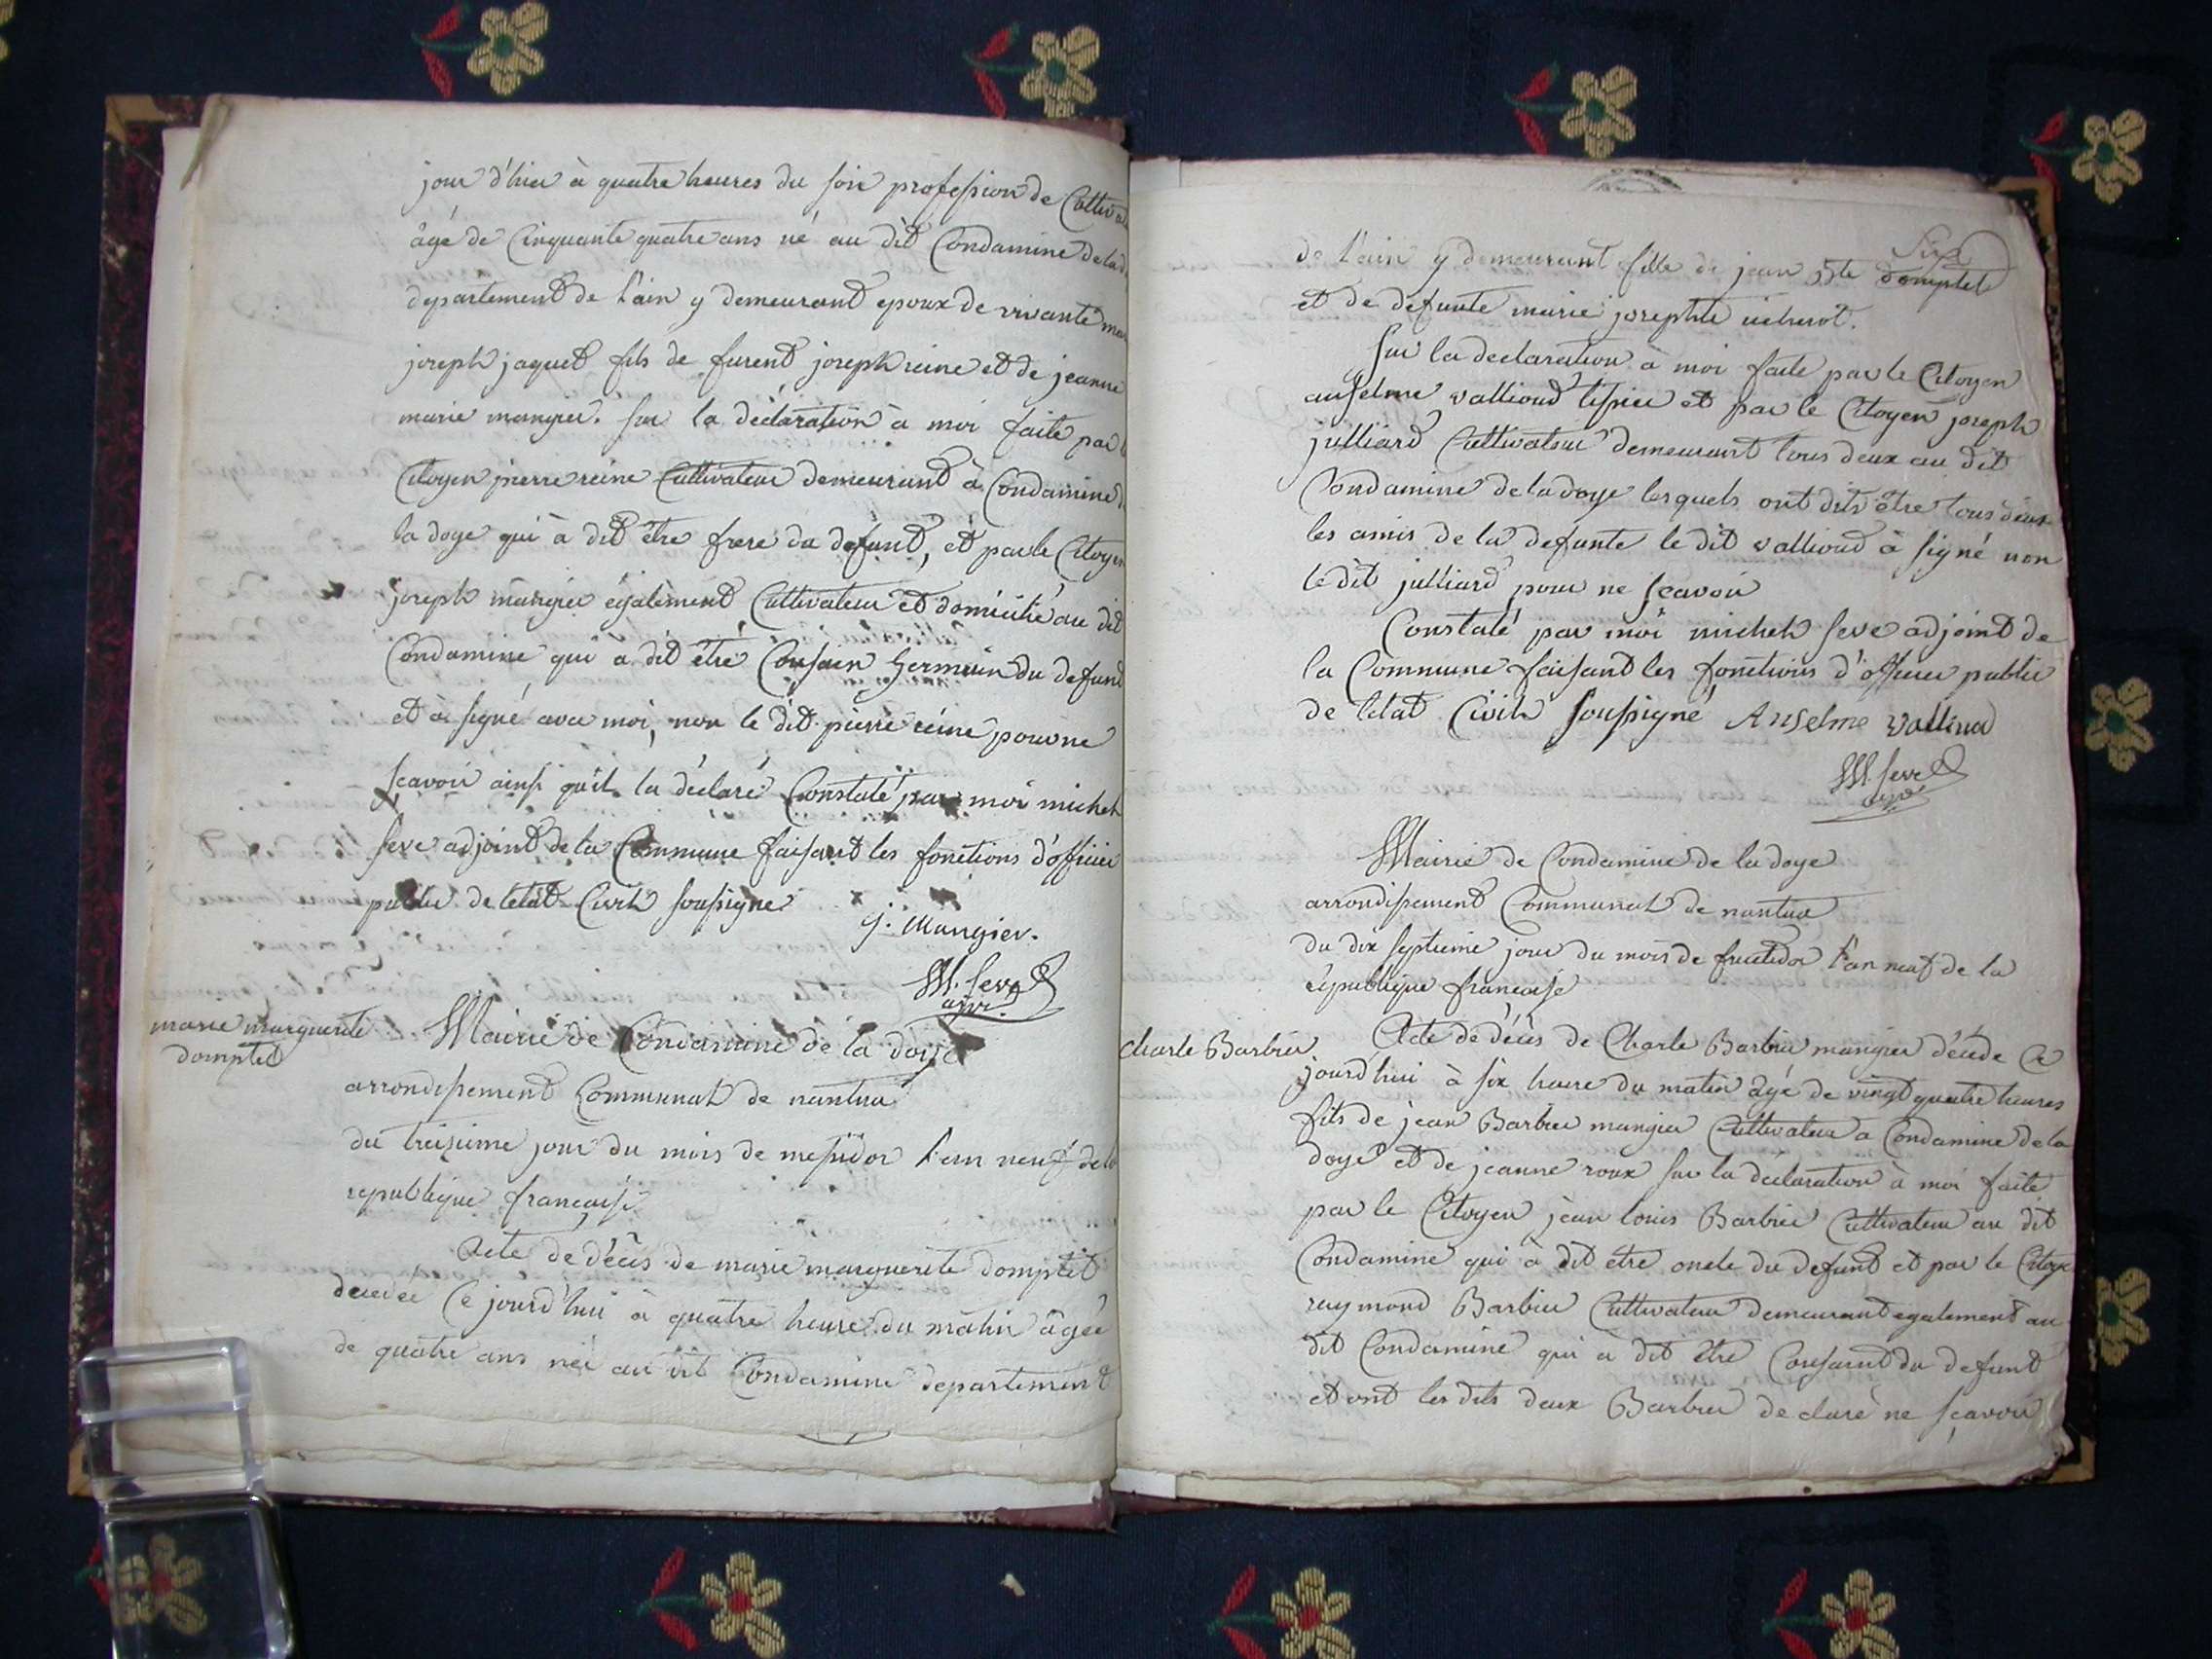 jour d'hier à quatre heures du soir profession de Cultiva
âgé de Cinquante quatre ans né au dit Condamine de la d
departement de l'ain y demeurant epoux de vivante ma
joseph jaquet fils de furent joseph reine et de jeanne
marie mangier. sur la déclaration à moi faite par l
Citoyen pierre reine Cultivateur demeurant à Condamine d
la doye qui à dit être frere du defunt, et par le Citoyen
joseph mangier également Cultivateur et domicilié au dit
Condamine qui à dit être Cousain Germain du defunt
et à signé avec moi, non le dit pierre reine pour ne
sçavoir ainsi qu'il la déclaré Constaté par moi michel
seve adjoint de la Commune faisant les fonctions d'officier
public de letat Civil soussigné
j. Mangier.
M. Seve
adjt
marie marguerite
domptet
Mairie de Condamine de la doye
arrondissement Communal de nantua
du treizieme jour du mois de messidor l'an neuf de la
republique française
Acte de décès de marie marguerite domptet
decedée Ce jourd'hui à quatre heure du matin âgée
de quatre ans née au dit Condamine departement
Six
de l'ain y demeurant fille de jean bte domptet
et de defunte marie josephte
Sur la declaration à moi faite par le Citoyen
anselme vallioud et par le Citoyen joseph
julliard Cultivateur demeurant tous deux au dit
Condamine de la doye lesquels ont dits être tous deux
les amis de la defunte le dit vallioud à signé non
le dit julliard pour ne sçavoir
Constaté par moi michel seve adjoint de
la Commune faisant les fonctions d'officier public
de letat Civil soussigné Anselme vallioud
M. Seve
adjt
Mairie de Condamine de la doye
arrondissement Communal de nantua
du dix septieme jour du mois de fructidor l'an neuf de la
république française
Charle Barbier
Acte de décès de Charle Barbier mangier décédé Ce
jourd'hui à six heure du matin âgé de vingt quatre heures
fils de jean Barbier mangier Cultivateur a Condamine de la
doye et de jeanne roux sur la déclaration à moi faite
par le Citoyen jean louis Barbier Cultivateur au dit
Condamine qui à dit être oncle du defunt et par le Citoye
raymond Barbier Cultivateur demeurant egalement au
dit Condamine qui a dit être Cousaint du defunt
et ont les dits deux Barbier declaré ne sçavoir